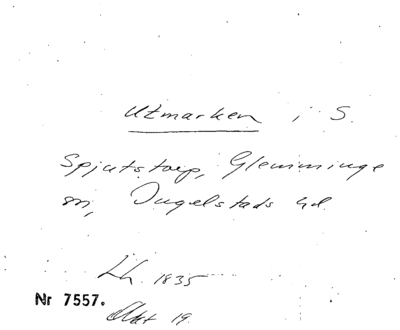 Utmarken i S.
Spjutstorp, Glemminge
sn, Ingelstads hd
Lh. 1835
Nr 7557.
Akt 19.